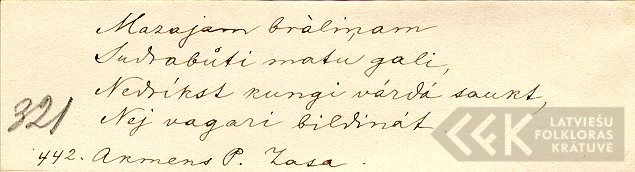 Mazajam bràliņam
Sudrabůti matu gali,
Nedríkst kungi várdá saukt,
321 Nej vagari bildinát.
442. Akmens P. Zasa.
LATVIEŠU
FOLKLORAS
KRĀTUVE